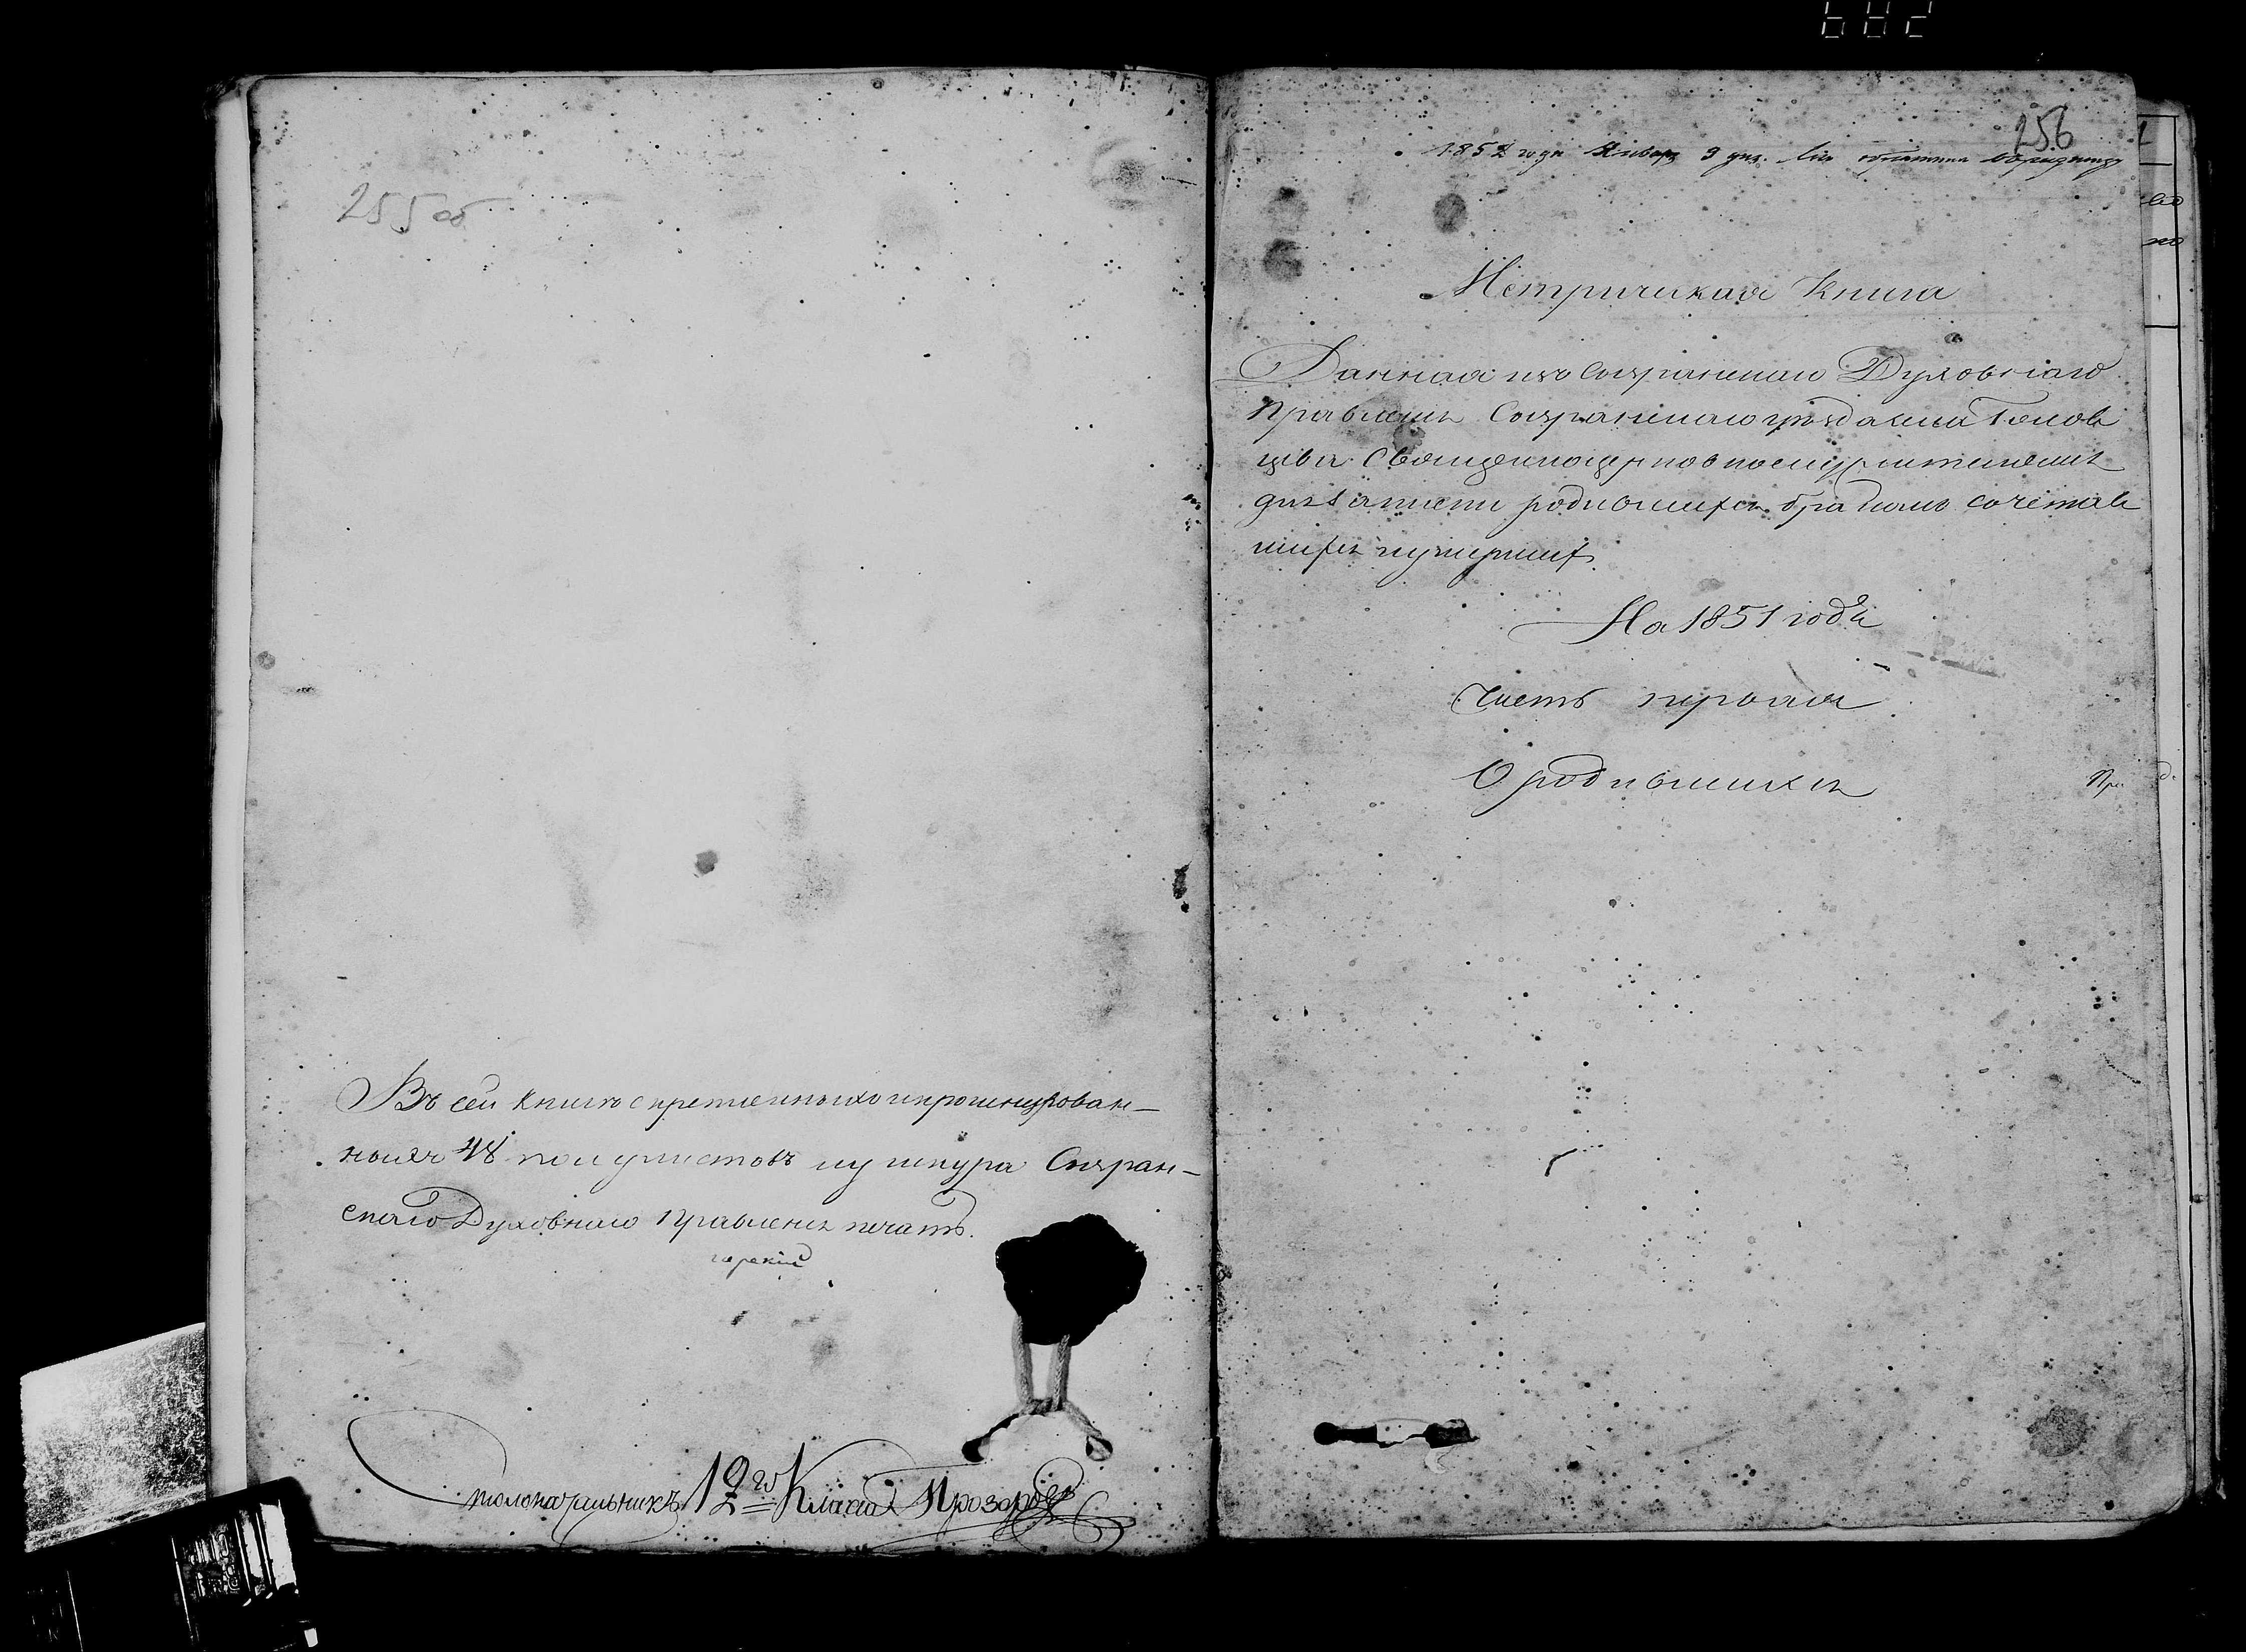 255 об
Въ сей книге скрепленныхъ и прошнурован-
ныхъ 48 полулистовъ и у шнура Сызран-
скаго Духовнаго Правления печать.
Столоначальникъ 12го Класса Прозоровъ
256
1852 года Января 9 дня.
Метрическая Книга
Данная изъ Сызранскаго Духовнаго
Правления Сызранскаго уезда села
Священноцерковнослужителямъ
для записи родившихся браком сочетав
шихся и умерших
На 1851 годъ
Часть первая
О родившихся